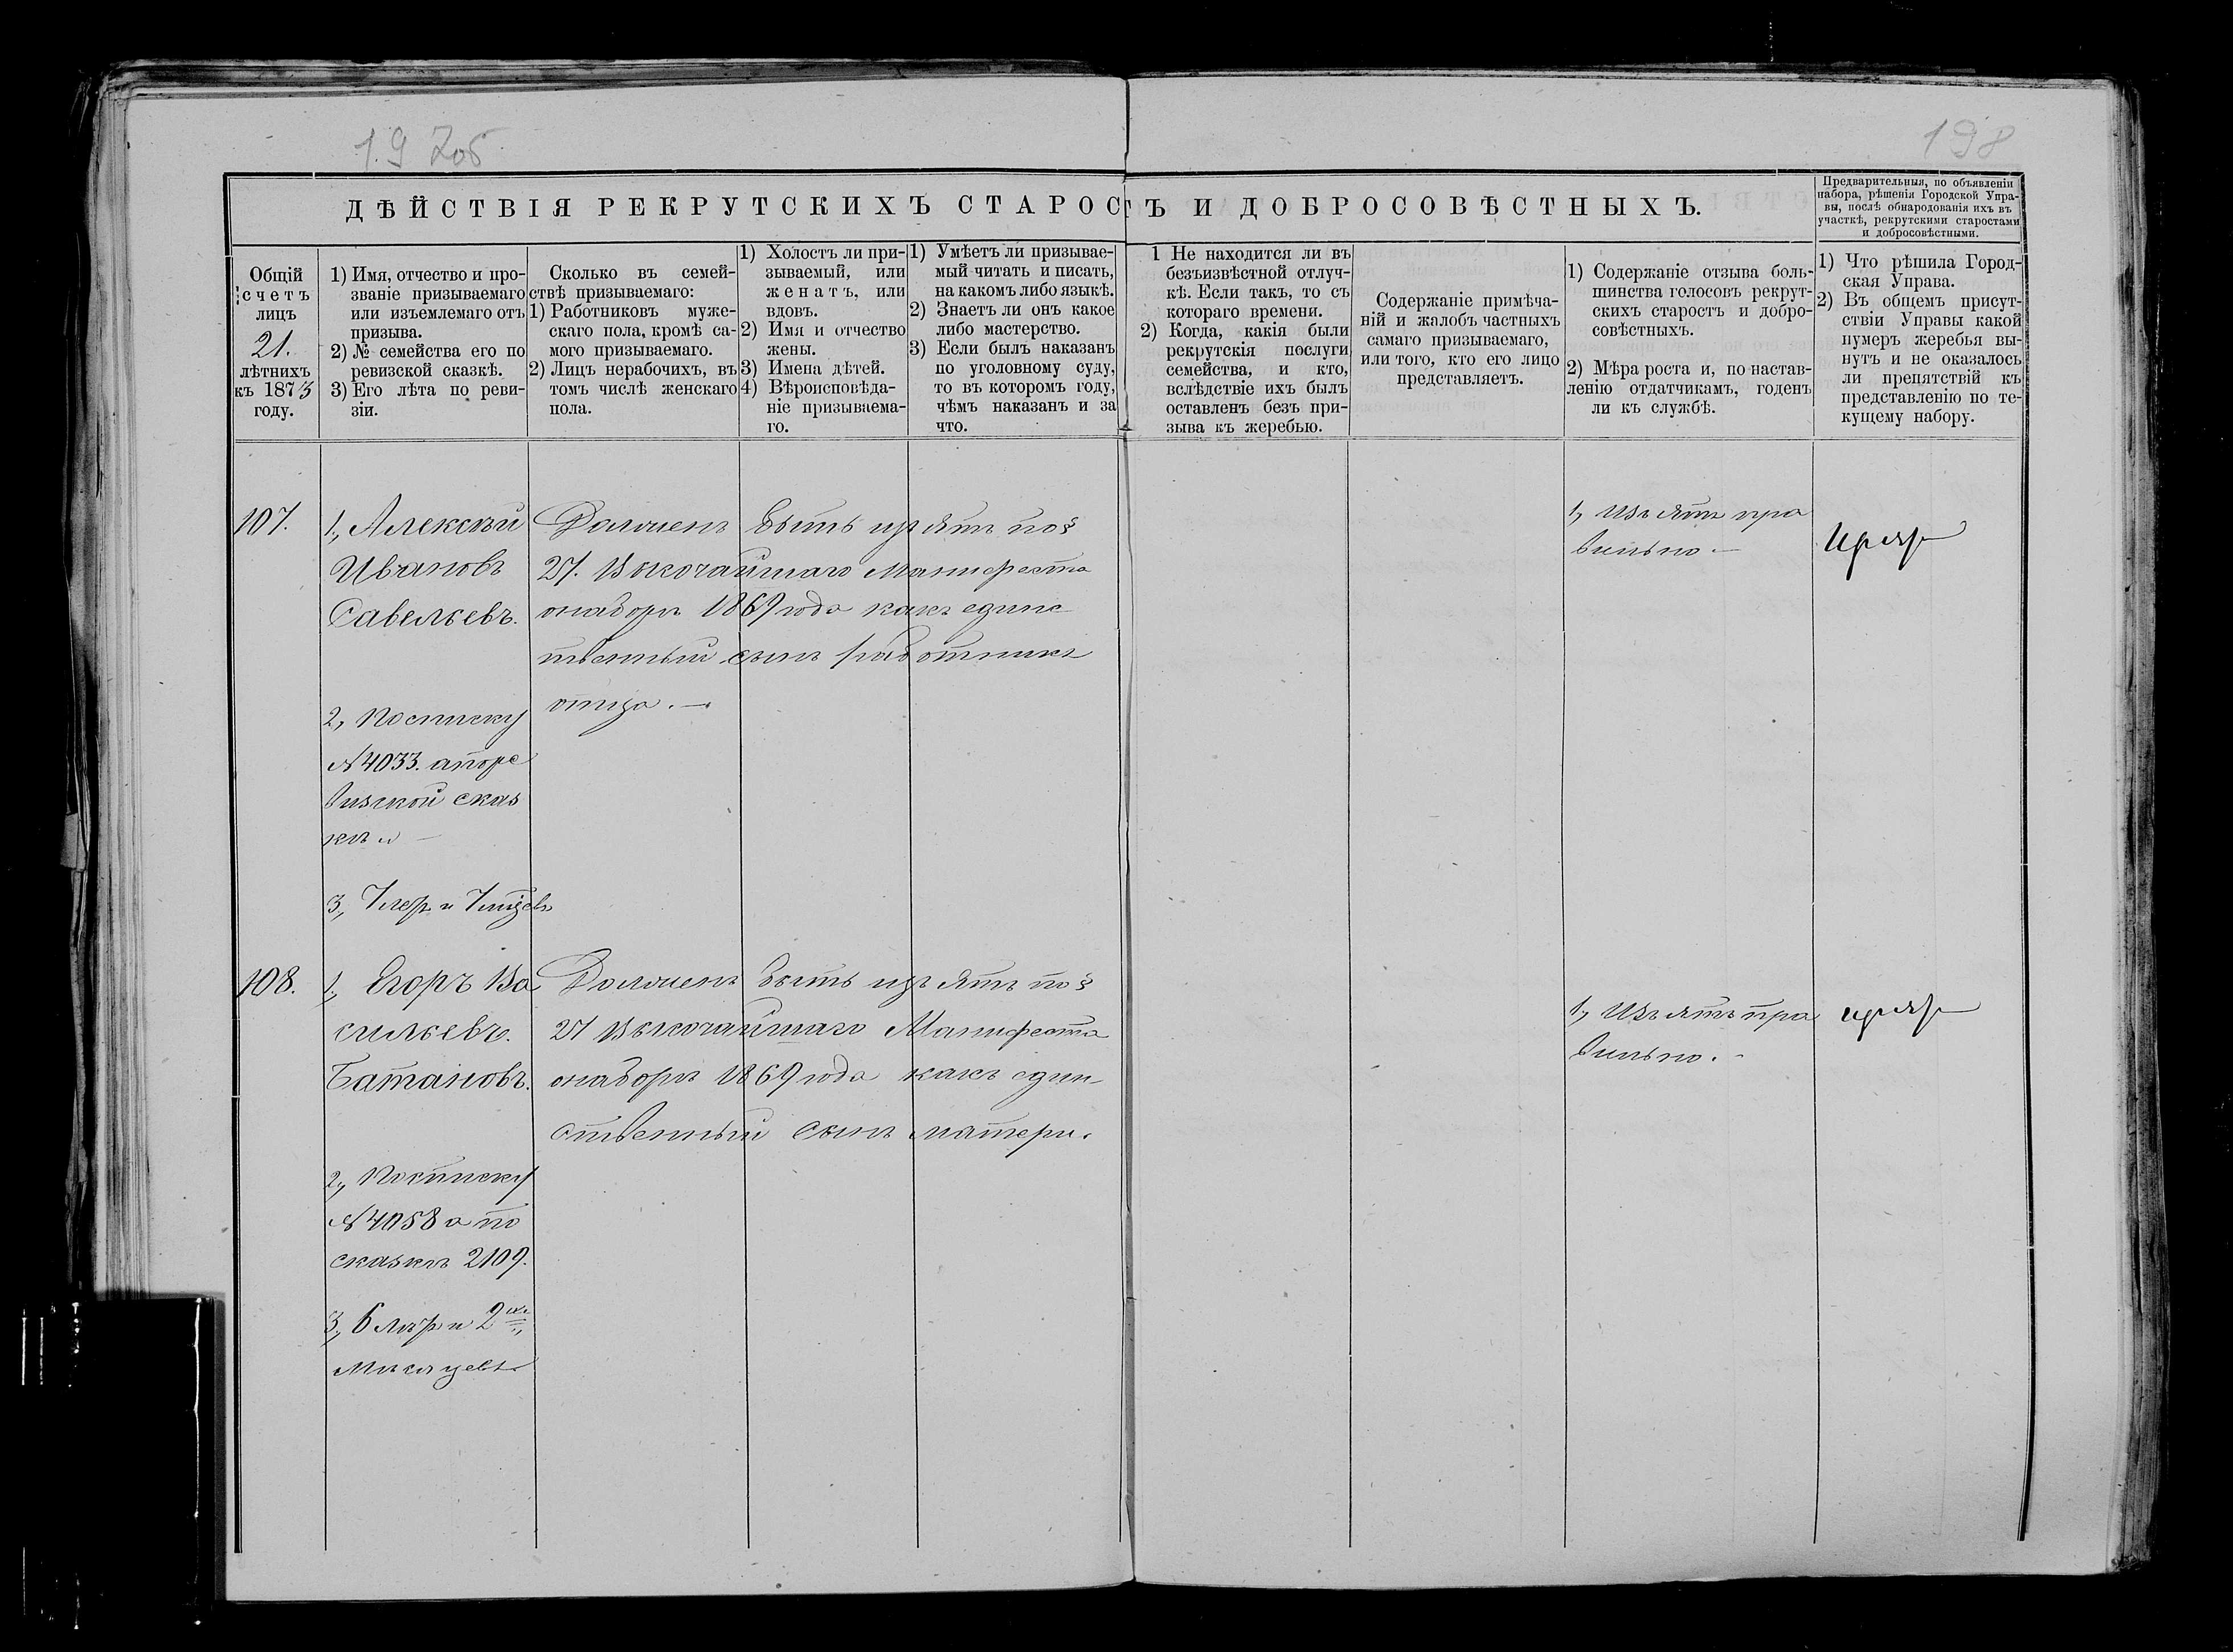 197об
198
ДѢЙСТВІЯ РЕКРУТСКИХЪ СТАРОСТЪ И ДОБРОСОВѢСТНЫХЪ.
Предварительныя, по объявленіи
набора, рѣшенія Городской Упра-
вы, послѣ обнародованія ихъ въ
участкѣ, рекрутскими старостами
и добросовѣстными.
Общій
счетъ
лицъ
21.
лѣтнихъ
къ 1873
году.
1) Имя, отчество и про-
званіе призываемаго
или изъемлемаго отъ
призыва.
2) № семейства его по
ревизской сказкѣ.
3) Его лѣта по реви-
зіи.
Сколько въ семей-
ствѣ призываемаго:
1) Работниковъ муже-
скаго пола, кромѣ са-
мого призываемаго.
2) Лицъ нерабочихъ, въ
томъ числѣ женскаго
пола.
1) Холостъ ли при-
зываемый, или
женатъ, или
вдовъ.
2) Имя и отчество
жены.
3) Имена дѣтей.
4) Вѣроисповѣда-
ніе призываема-
го.
1) Умѣетъ ли призывае-
мый читать и писать,
на какомъ либо языкѣ.
2) Знаетъ ли онъ какое
либо мастерство.
3) Если былъ наказанъ
по уголовному суду,
то въ которомъ году,
чѣмъ наказанъ и за
что.
1 Не находится ли въ
безъизвѣстной отлуч-
кѣ. Если такъ, то съ
котораго времени.
2) Когда, какія были
рекрутскія послуги
семейства, и кто,
вслѣдствіе ихъ былъ
оставленъ безъ при-
зыва къ жеребью.
Содержаніе примѣча-
ній и жалобъ частныхъ
самаго призываемаго,
или того, кто его лицо
представляетъ.
1) Содержаніе отзыва боль-
шинства голосовъ рекрут-
скихъ старостъ и добро-
совѣстныхъ.
2) Мѣра роста и, по настав-
ленію отдатчикамъ, годенъ
ли къ службѣ.
1) Что рѣшила Город-
ская Управа.
2) Въ общемъ присут-
ствіи Управы какой
нумеръ жеребья вы-
нутъ и не оказалось
ли препятствій къ
представленію по те-
кущему набору.
107.
1., Алексѣй
Ивановъ
Савельевъ.
2, По списку
№ 4033. а по ре
визской сказ
кѣ
Долженъ быть изъятъ по §
27. Высочайшаго Манифеста
о наборѣ 1869 года какъ единс
твенный сынъ работникъ
отца. —
1, Изъятъ пра
вильно. —
108.
1., Егоръ Ва
сильевъ.
Батановъ.
2., По списку
№ 4058 а по
сказкѣ 2109.
3, 6 лѣтъ и 2
мѣсяцевъ
Долженъ быть изъятъ по §
27 Высочайшаго Манифеста
о наборѣ 1869 года какъ един
ственный сынъ матери.
1, Изъятъ пра
вильно. -